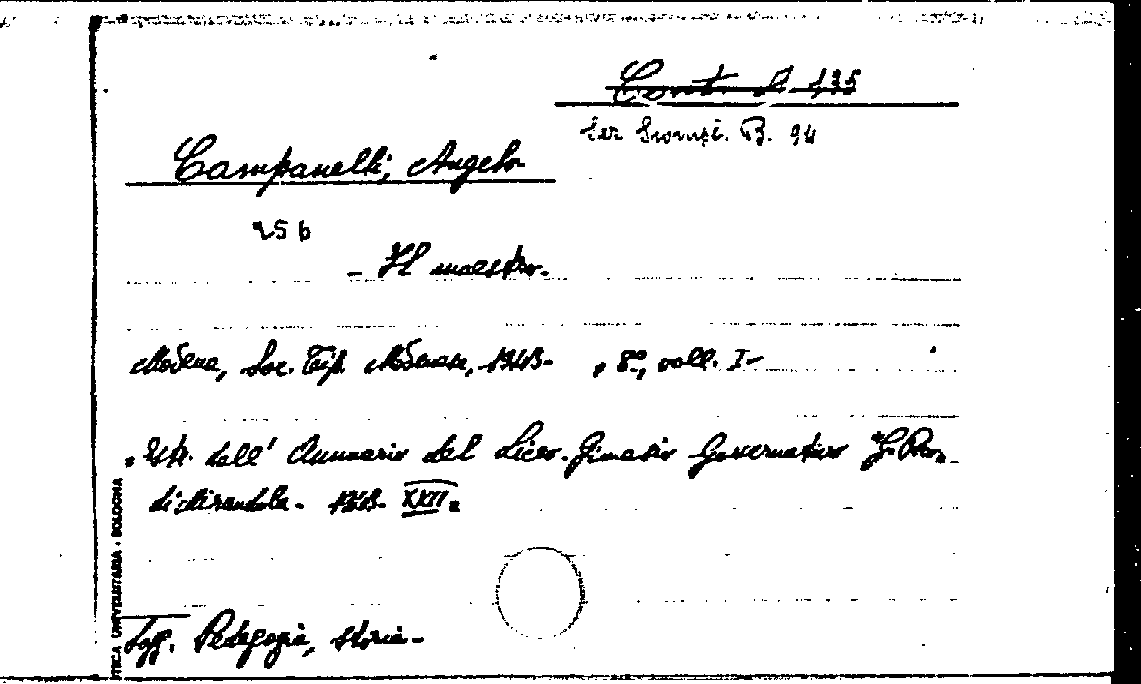 Cont. A 135
Campanelli, Angelo
256
- Il maestro.
Modena, Soc. Tip. Modenese, 1943- , 8°, voll. I-
Estr. dall' Annuario del Liceo-Ginnasio Governativo "G. Pico"
di Mirandola. 1943- XXII.
Sogg. Pedagogia, storia-
TECA UNIVERSITARIA - BOLOGNA